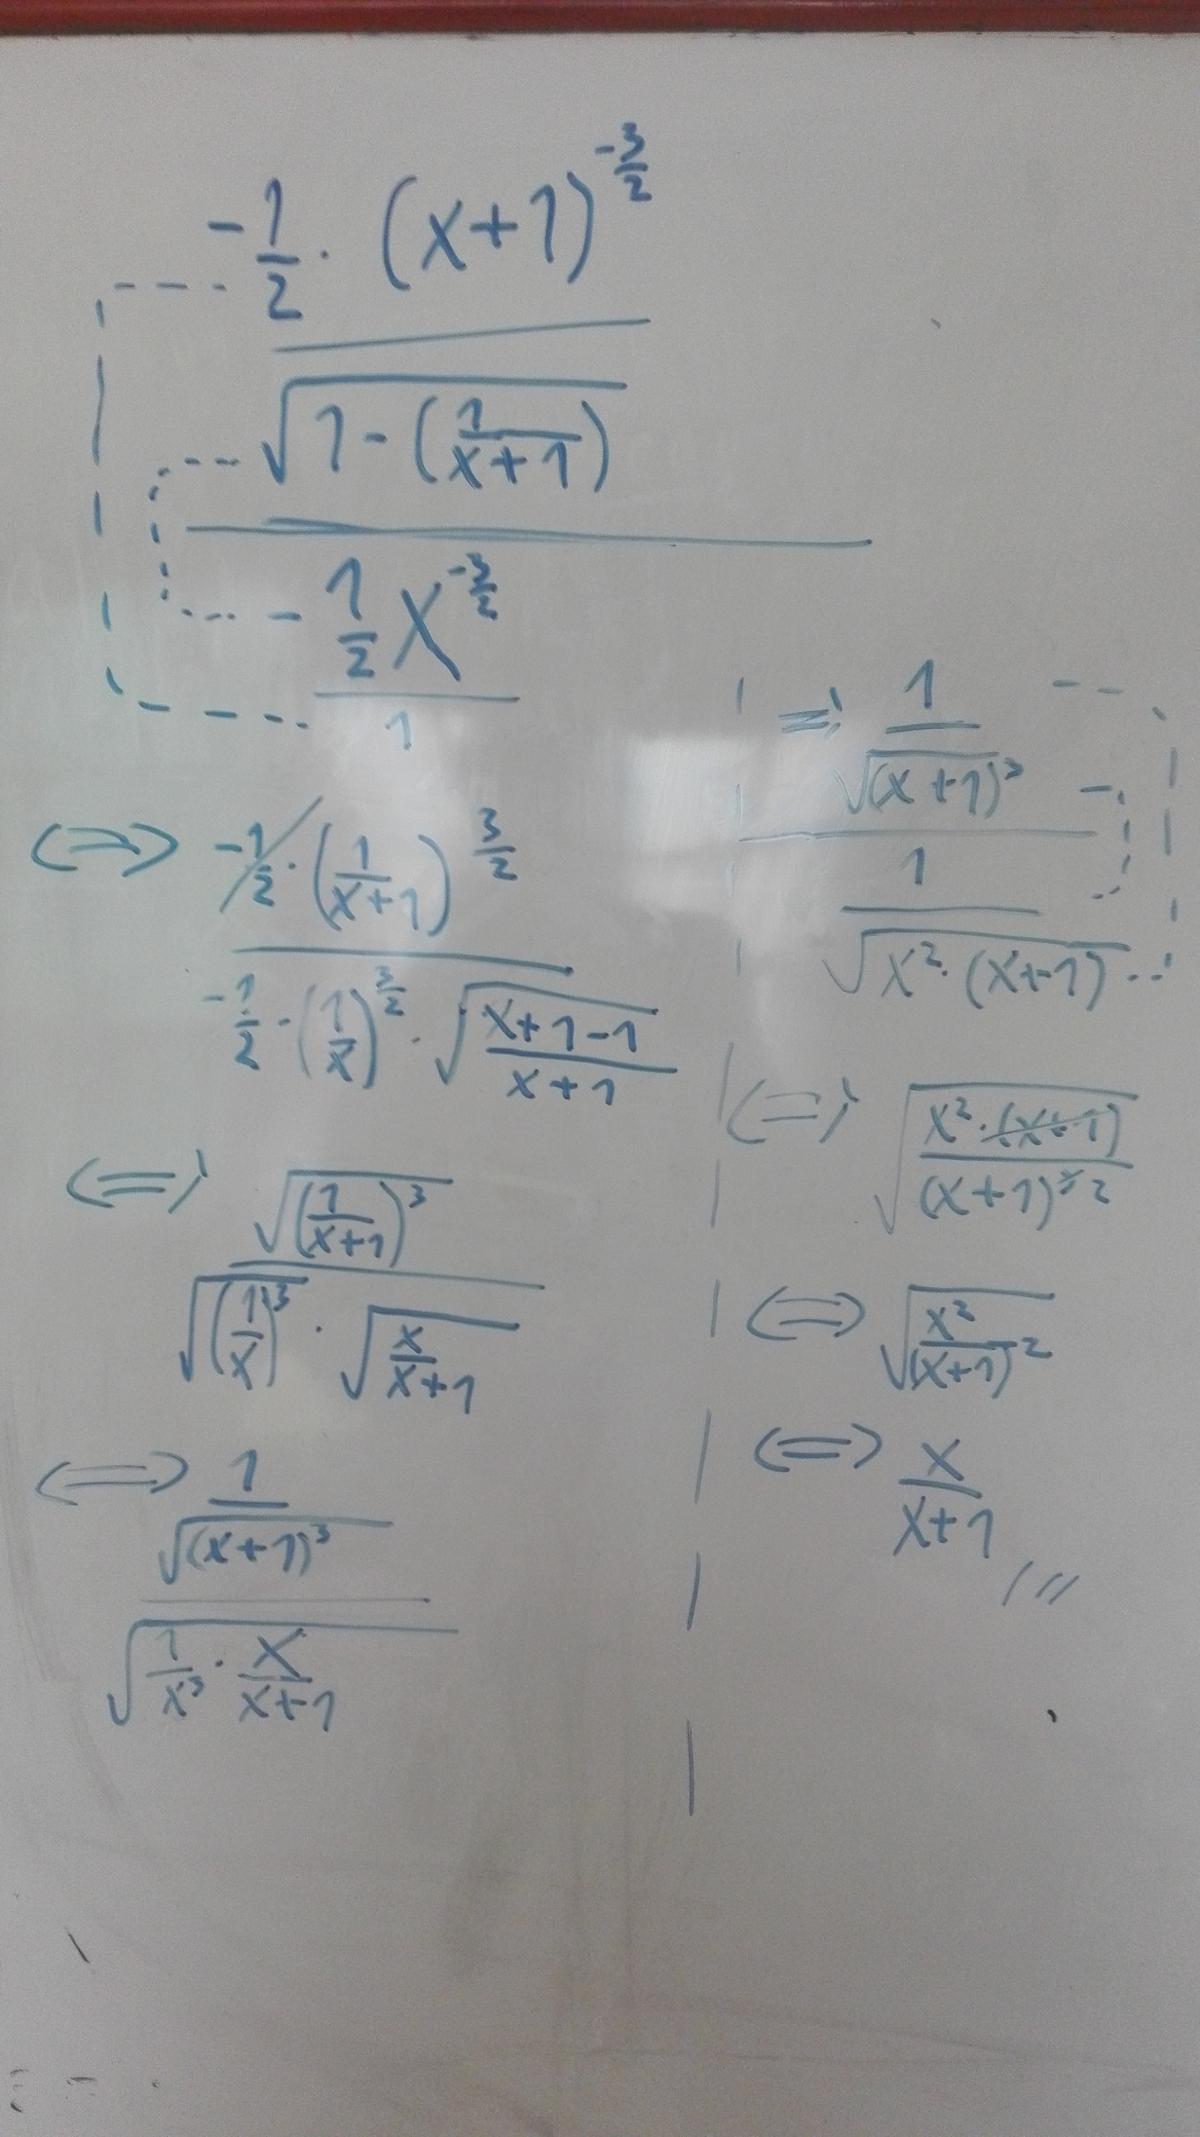 -1/2 · (x+1)^(-3/2)
√(1-(1/(x+1)))
-1/2 x^(-3/2)
1
<=> -1/2 · (1/(x+1))^(3/2)
-1/2 · (1/x)^(3/2) · √((x+1-1)/(x+1))
<=> √((1/(x+1))^3)
√((1/x)^3) · √(x/(x+1))
<=> 1/√((x+1)^3)
√(1/x^3 · x/(x+1))
=> 1/√((x+1)^3)
1/√(x^2·(x+1))
<=> √((x^2·(x+1))/(x+1)^3 2)
<=> √(x^2/(x+1)^2)
<=> x/(x+1)